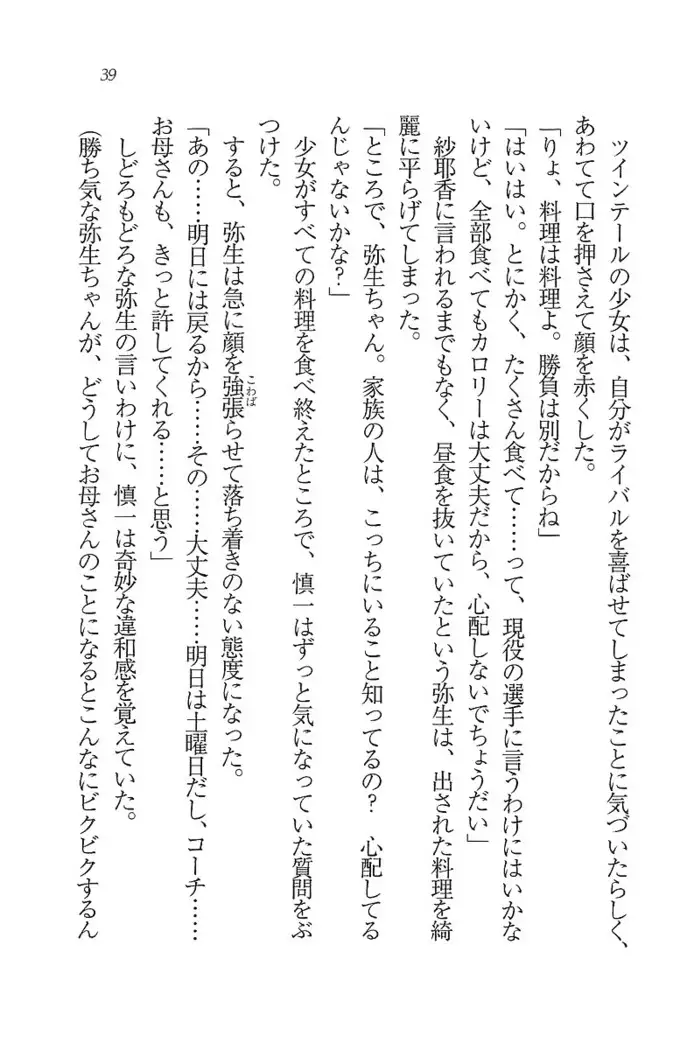 39
ツインテールの少女は、自分がライバルを喜ばせてしまったことに気づいたらしく、
あわてて口を押さえて顔を赤くした。
「りょ、料理は料理よ。勝負は別だからね」
「はいはい。とにかく、たくさん食べて……って、現役の選手に言うわけにはいかな
いけど、全部食べてもカロリーは大丈夫だから、心配しないでちょうだい」
紗耶香に言われるまでもなく、昼食を抜いていたという弥生は、出された料理を綺
麗に平らげてしまった。
「ところで、弥生ちゃん。家族の人は、こっちにいること知ってるの？　心配してる
んじゃないかな？」
少女がすべての料理を食べ終えたところで、慎一はずっと気になっていた質問をぶ
つけた。
すると、弥生は急に顔を強張らせて落ち着きのない態度になった。
こわば
「あの……明日には戻るから……その……大丈夫……明日は土曜日だし、コーチ……
お母さんも、きっと許してくれる……と思う」
しどろもどろな弥生の言いわけに、慎一は奇妙な違和感を覚えていた。
（勝ち気な弥生ちゃんが、どうしてお母さんのことになるとこんなにビクビクするん